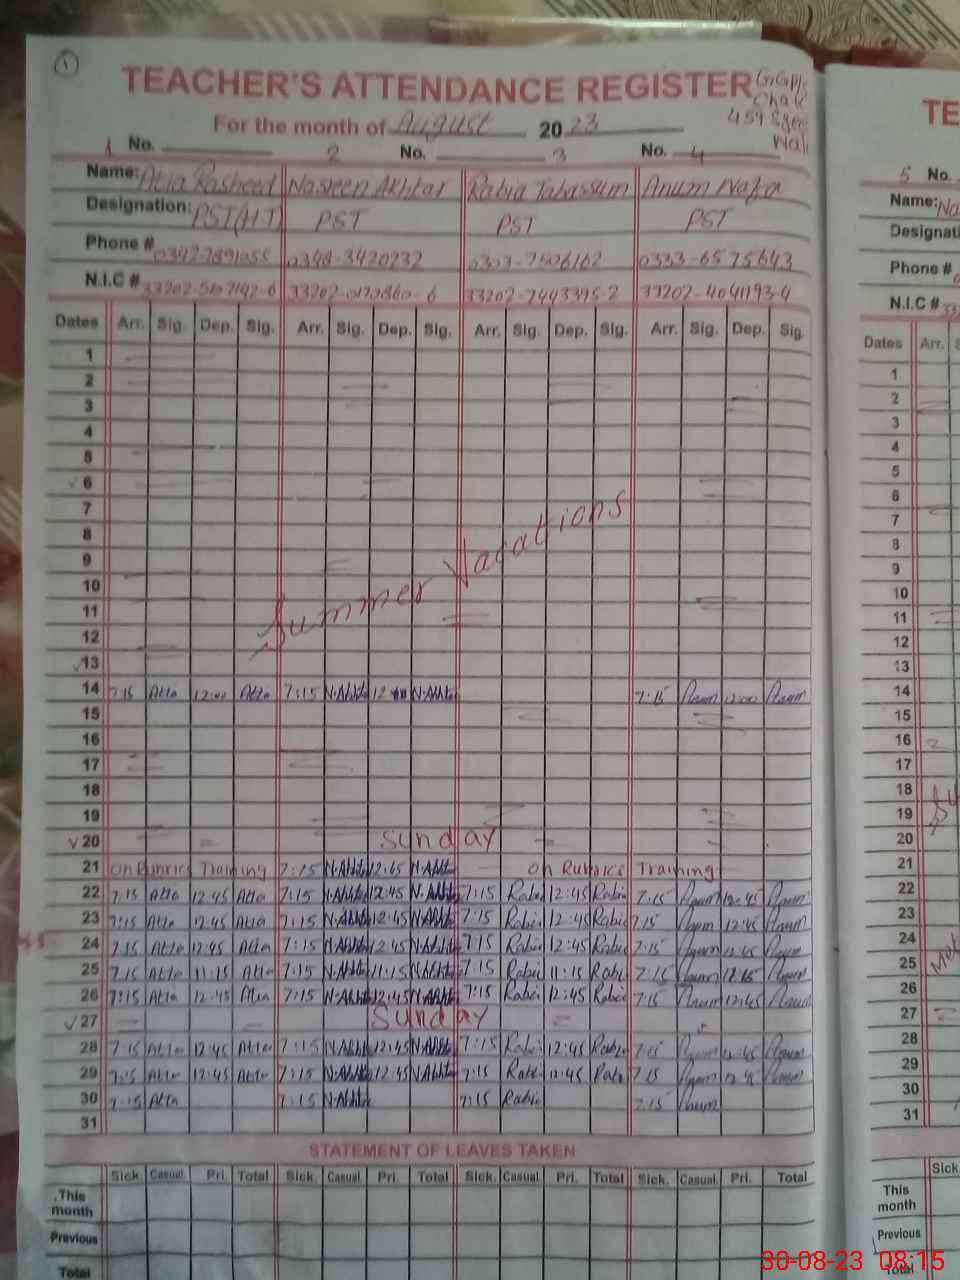 1
TEACHER'S ATTENDANCE REGISTER
Chak
459
Wali
For the month of August 2023
1 No. 2 No. 3 No. 4
Name: Atia Rasheed Nasreen Akhtar Rabia Tabassum Anum
Designation: PST(HT) PST PST PST
Phone # 0348-3420232 0303-7506162 0333-6575643
N.I.C # 33202-7443395-2 33202-4041193-4
Dates Arr. Sig. Dep. Sig. Arr. Sig. Dep. Sig. Arr. Sig. Dep. Sig. Arr. Sig. Dep. Sig.
1
2
3
4
5
6
7
8
9
10
11
12
13
Summer Vacations
14 7:15 Atia 12:00 Atia 7:15 N.Akhtar 12:00 N.Akhtar 7:15 Anum 12:00 Anum
15
16
17
18
19
20 Sunday
21 on Rubrics Training 7:15 N.Akht 12:45 N.Akht on Rubrics Training
22 7:15 Atia 12:45 Atia 7:15 N.Akht 12:45 N.Akht 7:15 Rabia 12:45 Rabia 7:15 Anum 12:45 Anum
23 7:15 Atia 12:45 Atia 7:15 N.Akht 12:45 N.Akht 7:15 Rabia 12:45 Rabia 7:15 Anum 12:45 Anum
24 7:15 Atia 12:45 Atia 7:15 N.Akht 12:45 N.Akht 7:15 Rabia 12:45 Rabia 7:15 Anum 12:45 Anum
25 7:15 Atia 11:15 Atia 7:15 N.Akht 11:15 N.Akht 7:15 Rabia 11:15 Rabia 7:15 Anum 11:15 Anum
26 7:15 Atia 12:45 Atia 7:15 N.Akht 12:45 N.Akht 7:15 Rabia 12:45 Rabia 7:15 Anum 12:45 Anum
27 Sunday
28 7:15 Atia 12:45 Atia 7:15 N.Akht 12:45 N.Akht 7:15 Rabia 12:45 Rabia 7:15 Anum 12:45 Anum
29 7:15 Atia 12:45 Atia 7:15 N.Akht 12:45 N.Akht 7:15 Rabia 12:45 Rabia 7:15 Anum 12:45 Anum
30 7:15 Atia 7:15 N.Akht 7:15 Rabia 7:15 Anum
31
STATEMENT OF LEAVES TAKEN
Sick. Casual. Pri. Total Sick. Casual. Pri. Total Sick. Casual Pri. Total Sick. Casual. Pri. Total
This month
Previous
Total
TE
5 No.
Name: Na
Designati
Phone #
N.I.C # 33
Dates Arr. S
1
2
3
4
5
6
7
8
9
10
11
12
13
14
15
16
17
18
19
20
21
22
23
24
25
26
27
28
29
30
31
Sick
This month
Previous
Total
30-08-23 08:15